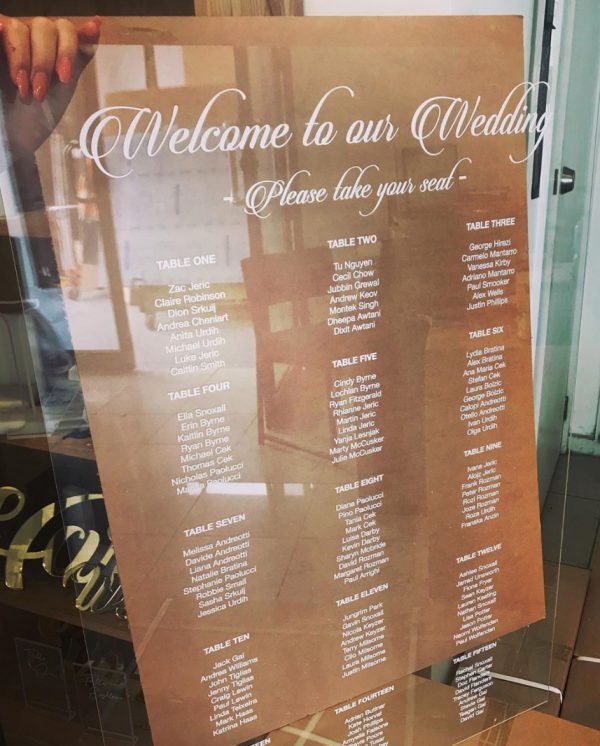 Welcome to our Wedding
- Please take your seat -
TABLE ONE
Zac Jeric
Claire Robinson
Dion Srkulj
Andrea Chenlart
Anita Urdih
Michael Urdih
Luke Jeric
Caitlin Smith
TABLE TWO
Tu Nguyen
Cecil Chow
Jubbin Grewal
Andrew Keov
Montek Singh
Dheepa Awtani
Dixit Awtani
TABLE THREE
George Hirezi
Carmelo Mantarro
Vanessa Kirby
Adriano Mantarro
Paul Smooker
Alex Wells
Justin Phillips
TABLE FOUR
Ella Snoxall
Erin Byrne
Kaitlin Byrne
Ryan Byrne
Michael Cek
Thomas Cek
Nicholas Paolucci
Paolucci
TABLE FIVE
Cindy Byrne
Lochlan Byrne
Ryan Fitzgerald
Rhianne Jeric
Martin Jeric
Linda Jeric
Vanja Lesnjak
Marty McCusker
Julia McCusker
TABLE SIX
Lydia Bratina
Alex Bratina
Ana Maria Cek
Stefan Cek
Laura Bolzic
George Bolzic
Calopi Andreotti
Otello Andreotti
Ivan Urdih
Olga Urdih
TABLE SEVEN
Melissa Andreotti
Davide Andreotti
Liana Andreotti
Natalie Bratina
Stephanie Paolucci
Robbie Small
Sasha Srkulj
Jessica Urdih
TABLE EIGHT
Diana Paolucci
Pino Paolucci
Tania Cek
Mark Cek
Luisa Darby
Kevin Darby
Sharyn Mcbride
David Rozman
Margaret Rozman
Paul Arrighi
TABLE NINE
Ivana Jeric
Alojz Jeric
Frank Rozman
Peter Rozman
Rozi Rozman
Joze Rozman
Roza Urdih
Franska Anzin
TABLE TEN
Jack Gal
Andrea Williams
John Tiglias
Jenny Tiglias
Craig Lewin
Paul Lewin
Linda Teixeira
Mark Haas
Katrina Haas
TABLE ELEVEN
Jungrim Park
Gavin Snoxall
Nicola Keyzer
Andrew Keyzer
Terry Milsome
Cilo Milsome
Laura Milsome
Justin Milsome
TABLE TWELVE
Ashlee Snoxall
Jarred Unsworth
Fiona Fryer
Sean Keating
Lauren Keating
Nathan Snoxall
Lisa Potter
Jason Potter
Naomi Wolfenden
Paul Wolfenden
TABLE FOURTEEN
Adrian Buttner
Kate Horvat
Josh Phillips
Amyella Fallone
TABLE FIFTEEN
Rachel Snoxall
Stephen Carter
David Flanders
David Gal